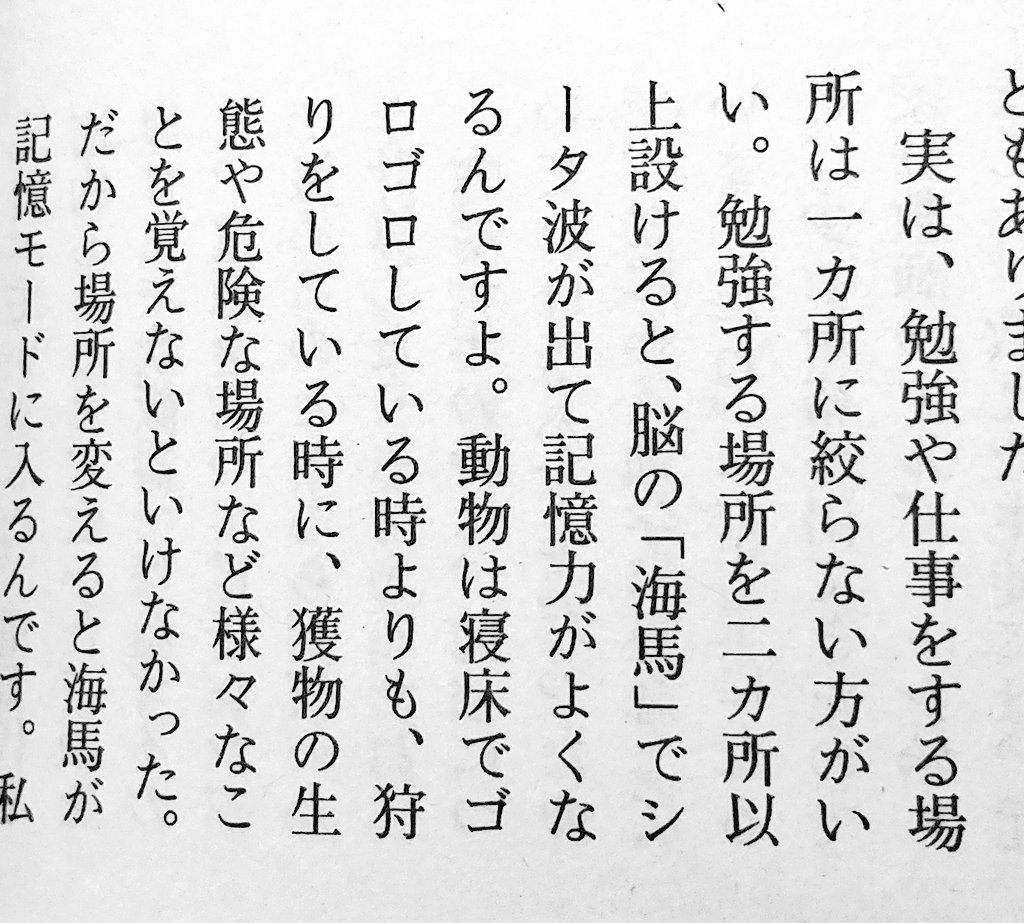 ともありました
実は、勉強や仕事をする場
所は一カ所に絞らない方がい
い。勉強する場所を二カ所以
上設けると、脳の「海馬」でシ
ータ波が出て記憶力がよくな
るんですよ。動物は寝床でゴ
ロゴロしている時よりも、狩
りをしている時に、獲物の生
態や危険な場所など様々なこ
とを覚えないといけなかった。
だから場所を変えると海馬が
記憶モードに入るんです。私